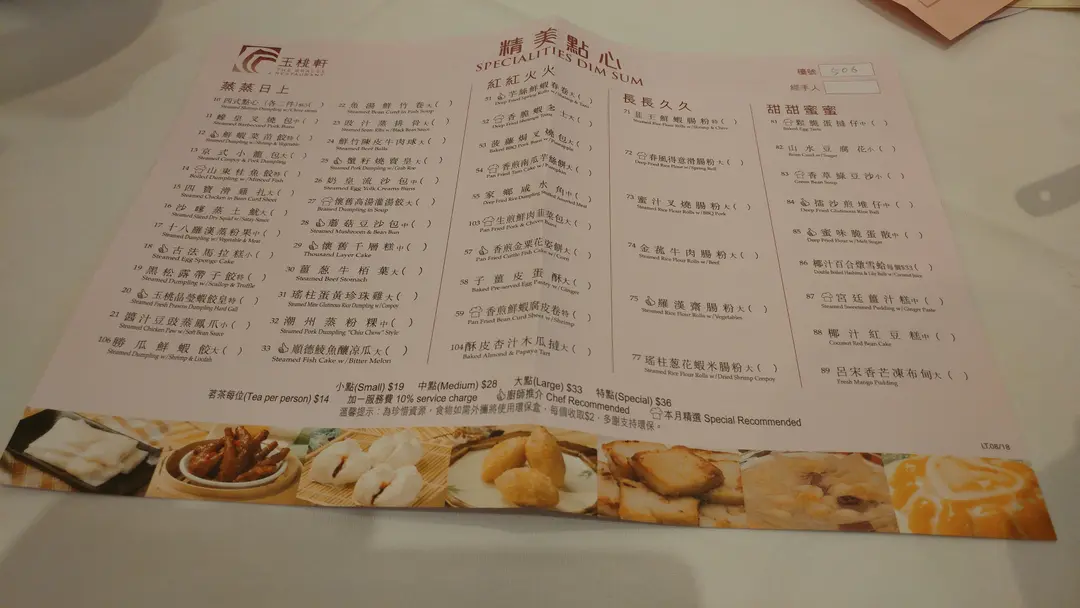 玉桃軒
THE GRACES
RESTAURANT
精美點心
SPECIALITIES DIM SUM
檯號 506
經手人
蒸蒸日上
10 四式點心(各二件)
11 蠔皇叉燒包中( )
Steamed Barbecued Pork Buns
12 鮮蝦菜苗餃特( )
Steamed Dumpling w/Shrimp & Vegetable
13 京式小籠包大( )
Steamed Conpoy & Pork Dumpling
14 山東桂魚餃特( )
Boiled Dumpling w/Minced Fish
15 四寶滑雞扎大( )
Steamed Chicken in Bean Curd Sheet
16 沙嗲蒸土魷大( )
Steamed Dry Squid w/Satay Sauce
17 十八羅漢蒸粉果中( )
Steamed Dumpling w/Vegetable & Meat
18 古法馬拉糕小( )
Steamed Egg Sponge Cake
19 黑松露帶子餃特( )
Steamed Dumpling w/Scallop & Truffle
20 玉桃晶瑩蝦餃皇特( )
Steamed Fresh Prawns Dumpling Hard Gall
21 醬汁豆豉蒸鳳爪小( )
Steamed Chicken Paw w/Soft Bean Sauce
106 勝瓜鮮蝦餃大( )
Steamed Dumpling w/Shrimp & Loofah
22 魚湯鮮竹卷大( )
Steamed Bean Curd in Fish Soup
23 豉汁蒸排骨大( )
Steamed Bean Ribs w/Black Bean Sauce
24 鮮竹陳皮牛肉球大( )
Steamed Beef Balls
25 蟹籽燒賣皇大( )
Steamed Pork Dumpling w/Crab Roe
26 奶皇流沙包中( )
Steamed Egg Yolk Creamy Buns
27 懷舊高湯灌湯餃大( )
Boiled Dumpling in Soup
28 蘑菇豆沙包中( )
Steamed Mushroom & Bean Bun
29 懷舊千層糕中( )
Thousand Layer Cake
30 薑葱牛栢葉大( )
Steamed Beef Stomach
31 瑤柱蛋黃珍珠雞大( )
Steamed Mine Glutinous Rice Dumpling w/Conpoy
32 潮州蒸粉粿中( )
Steamed Pork Dumpling "Chiu Chow" Style
33 順德鯪魚釀凉瓜大( )
Steamed Fish Cake w/Bitter Melon
紅紅火火
51 芋絲鮮蝦春卷大( )
Deep Fried Spring Rolls w/Shrimp & Taro
52 香脆蝦多士大( )
Deep Fried Shrimps Toast
53 菠蘿焗叉燒包大( )
Baked BBQ Pork Buns w/Pineapple
54 香煎南瓜芋絲餅大( )
Pan Fried Taro Cake w/Pumpkin
55 家鄉咸水角中( )
Deep Fried Rice Dumpling Stuffed Assorted Meat
103 生煎鮮肉韮菜包大( )
Pan Fried Pork & Chives Buns
57 香煎金粟花姿餅大( )
Pan Fried Cuttle Fish Cake w/Corn
58 子薑皮蛋酥大( )
Baked Preserved Egg Pastry w/Ginger
59 香煎鮮蝦腐皮卷特( )
Pan Fried Bean Curd Sheet w/Shrimp
104 酥皮杏汁木瓜撻大( )
Baked Almond & Papaya Tart
長長久久
71 韮王鮮蝦腸粉特( )
Steamed Rice Flour Rolls w/Shrimp & Chive
72 春風得意滑腸粉大( )
Deep Fried Rice Flour w/Spring Roll
73 蜜汁叉燒腸粉大( )
Steamed Rice Flour Rolls w/BBQ Pork
74 金菰牛肉腸粉大( )
Steamed Rice Flour Rolls w/Beef
75 羅漢齋腸粉大( )
Steamed Rice Flour Rolls w/Vegetarian
77 瑤柱葱花蝦米腸粉大( )
Steamed Rice Flour Rolls w/Dried Shrimp Conpoy
甜甜蜜蜜
81 鬆化蛋撻仔中( )
Baked Egg Tarts
82 山水豆腐花小( )
Bean Curd w/Ginger
83 香草綠豆沙小( )
Green Bean Soup
84 擂沙煎堆仔中( )
Deep Fried Glutinous Rice Ball
85 蜜味脆蛋散中( )
Deep Fried Flour w/Malt Sugar
86 椰汁百合燉雪蛤每個$33( )
Double Boiled Hashima & Lily Bulb w/Coconut Juice
87 宮廷薑汁糕中( )
Steamed Sweetened Pudding w/Ginger Paste
88 椰汁紅豆糕中( )
Coconut Red Bean Cake
89 呂宋香芒凍布甸大( )
Fresh Mango Pudding
小點(Small) $19 中點(Medium) $28 大點(Large) $33 特點(Special) $36
茗茶每位(Tea per person) $14 加一服務費 10% service charge 廚師推介 Chef Recommended 本月精選 Special Recommended
溫馨提示:為珍惜資源,食物如需外攜將使用環保盒,每個收取$2,多謝支持環保。
LT.08/18